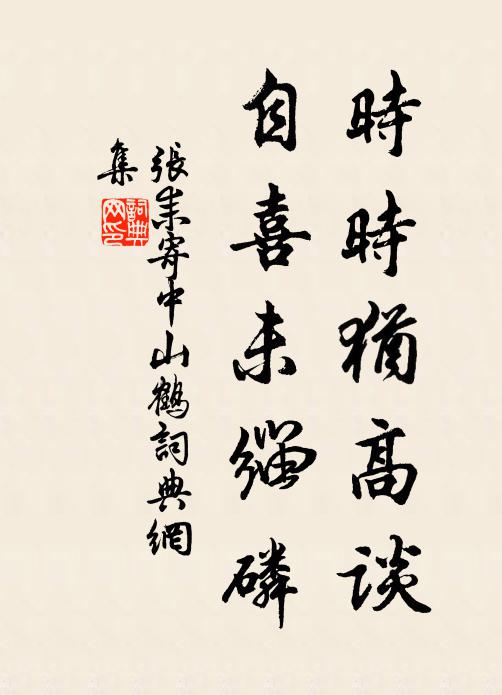 時時猶高談
自喜未緇磷
張耒寄中山鶴詞典網
集
詞典网印